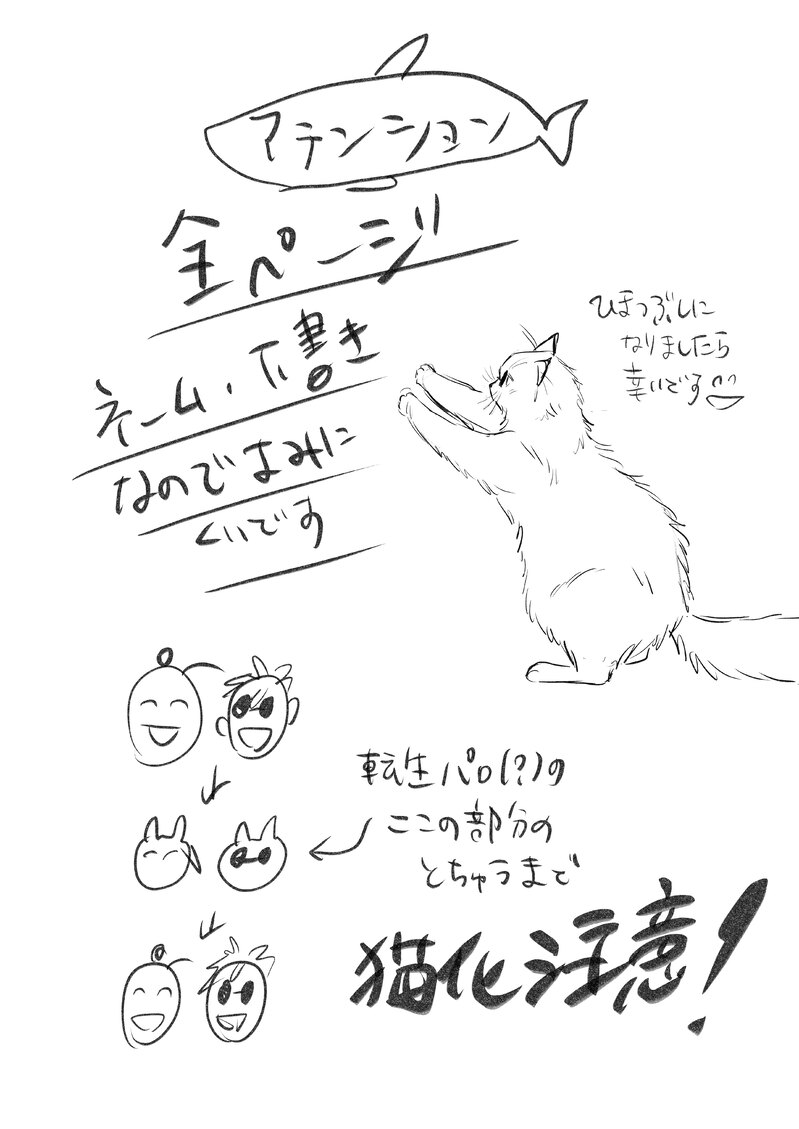 アテンション
全ページ
ネーム・下書き
なのでよみに
くいです
ひまつぶしに
なりましたら
幸いです
転生パロ(?)の
ここの部分の
とちゅうまで
猫化注意!